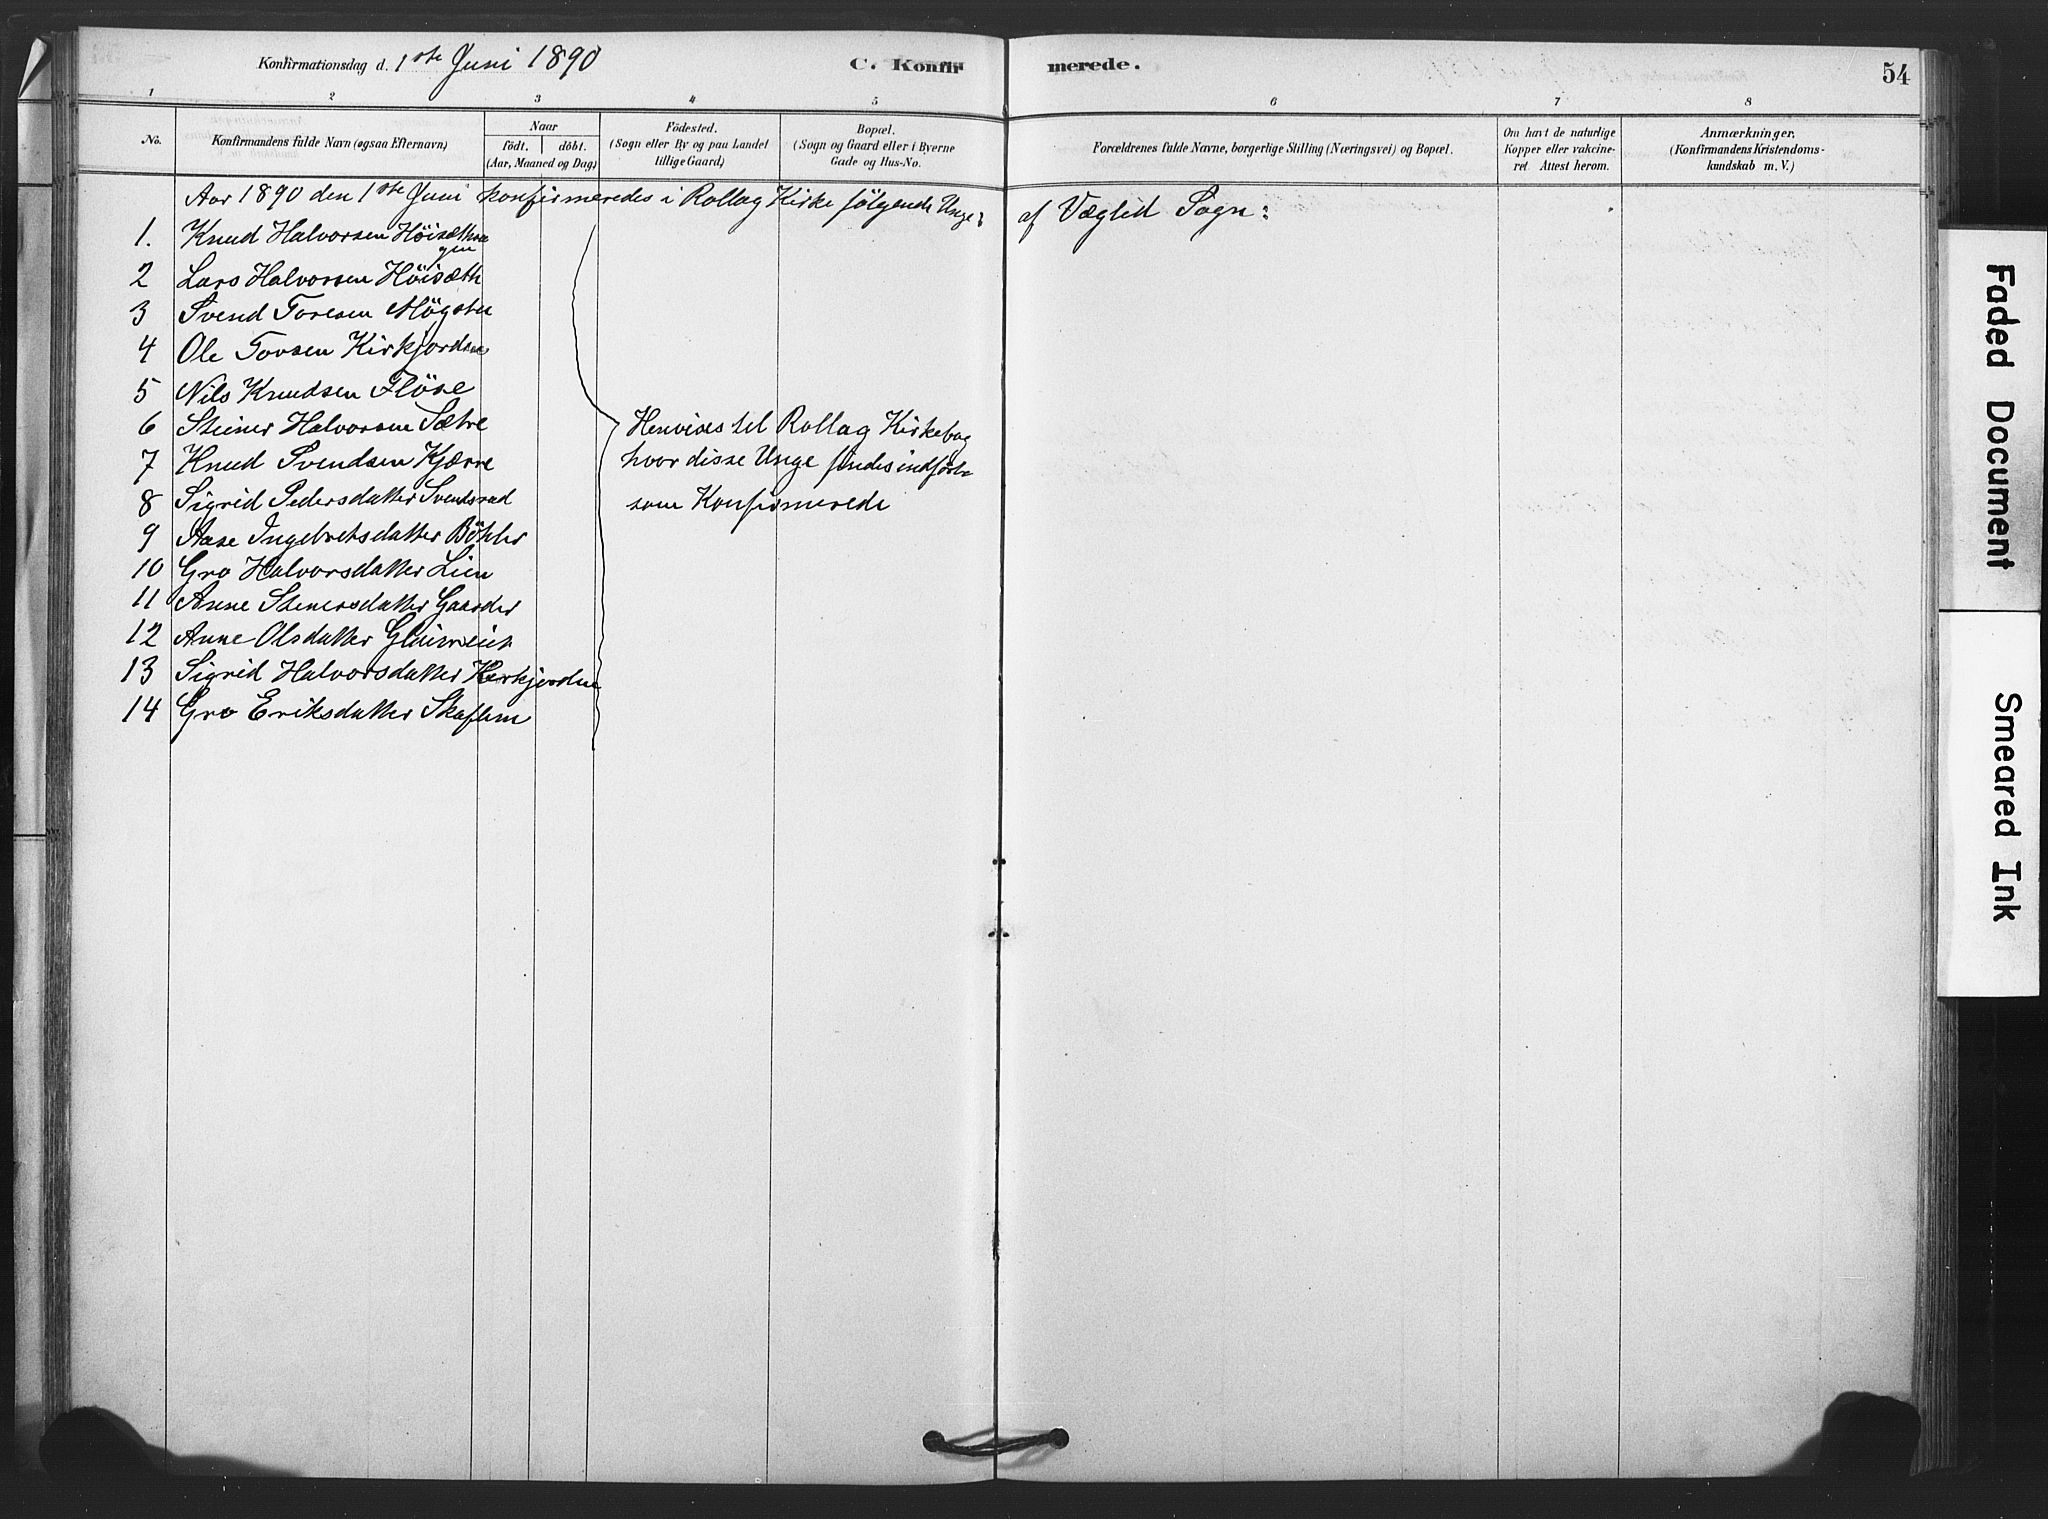 Konfirmationsdag d. 1ste Juni 1890
C. Konfirmerede.
54
1 2 3 4 5 6 7 8
No.
Konfirmandens fulde Navn (ogsaa Efternavn)
Naar
födt. döbt.
(Aar, Maaned og Dag)
Födested.
(Sogn eller By og paa Landet
tillige Gaard)
Bopæl.
(Sogn og Gaard eller i Byerne
Gade og Hus-No.
Forældrenes fulde Navne, borgerlige Stilling (Næringsvei) og Bopæl.
Om havt de naturlige
Kopper eller vakcine-
ret. Attest herom.
Anmærkninger.
(Konfirmandens Kristendoms-
kundskab m. V.)
Aar 1890 den 1ste Juni konfirmeredes i Rollag Kirke følgende Unge af Væglid Sogn:
1. Knud Halvorsen
2 Lars Halvorsen Höisæth
3 Svend Toresen Mögstu
4 Ole Tovsen Kirkjorden
5 Nils Knudsen Flöse
6 Stener Halvorsen Sætre
7 Knud Svendsen Kjærre
8 Sigrid Pedersdatter Svendsrud
9 Aase Ingebretsdatter Böhler
10 Gro Halvorsdatter Lien
11 Anne Stenersdatter Gaarder
12 Anne Olsdatter
13 Sigrid Halvorsdatter Kirkjorden
14 Gro Eriksdatter Skaflem
Henvises til Rollag Kirkebog
hvor disse Unge findes indförte
som Konfirmerede
Faded Document
Smeared Ink